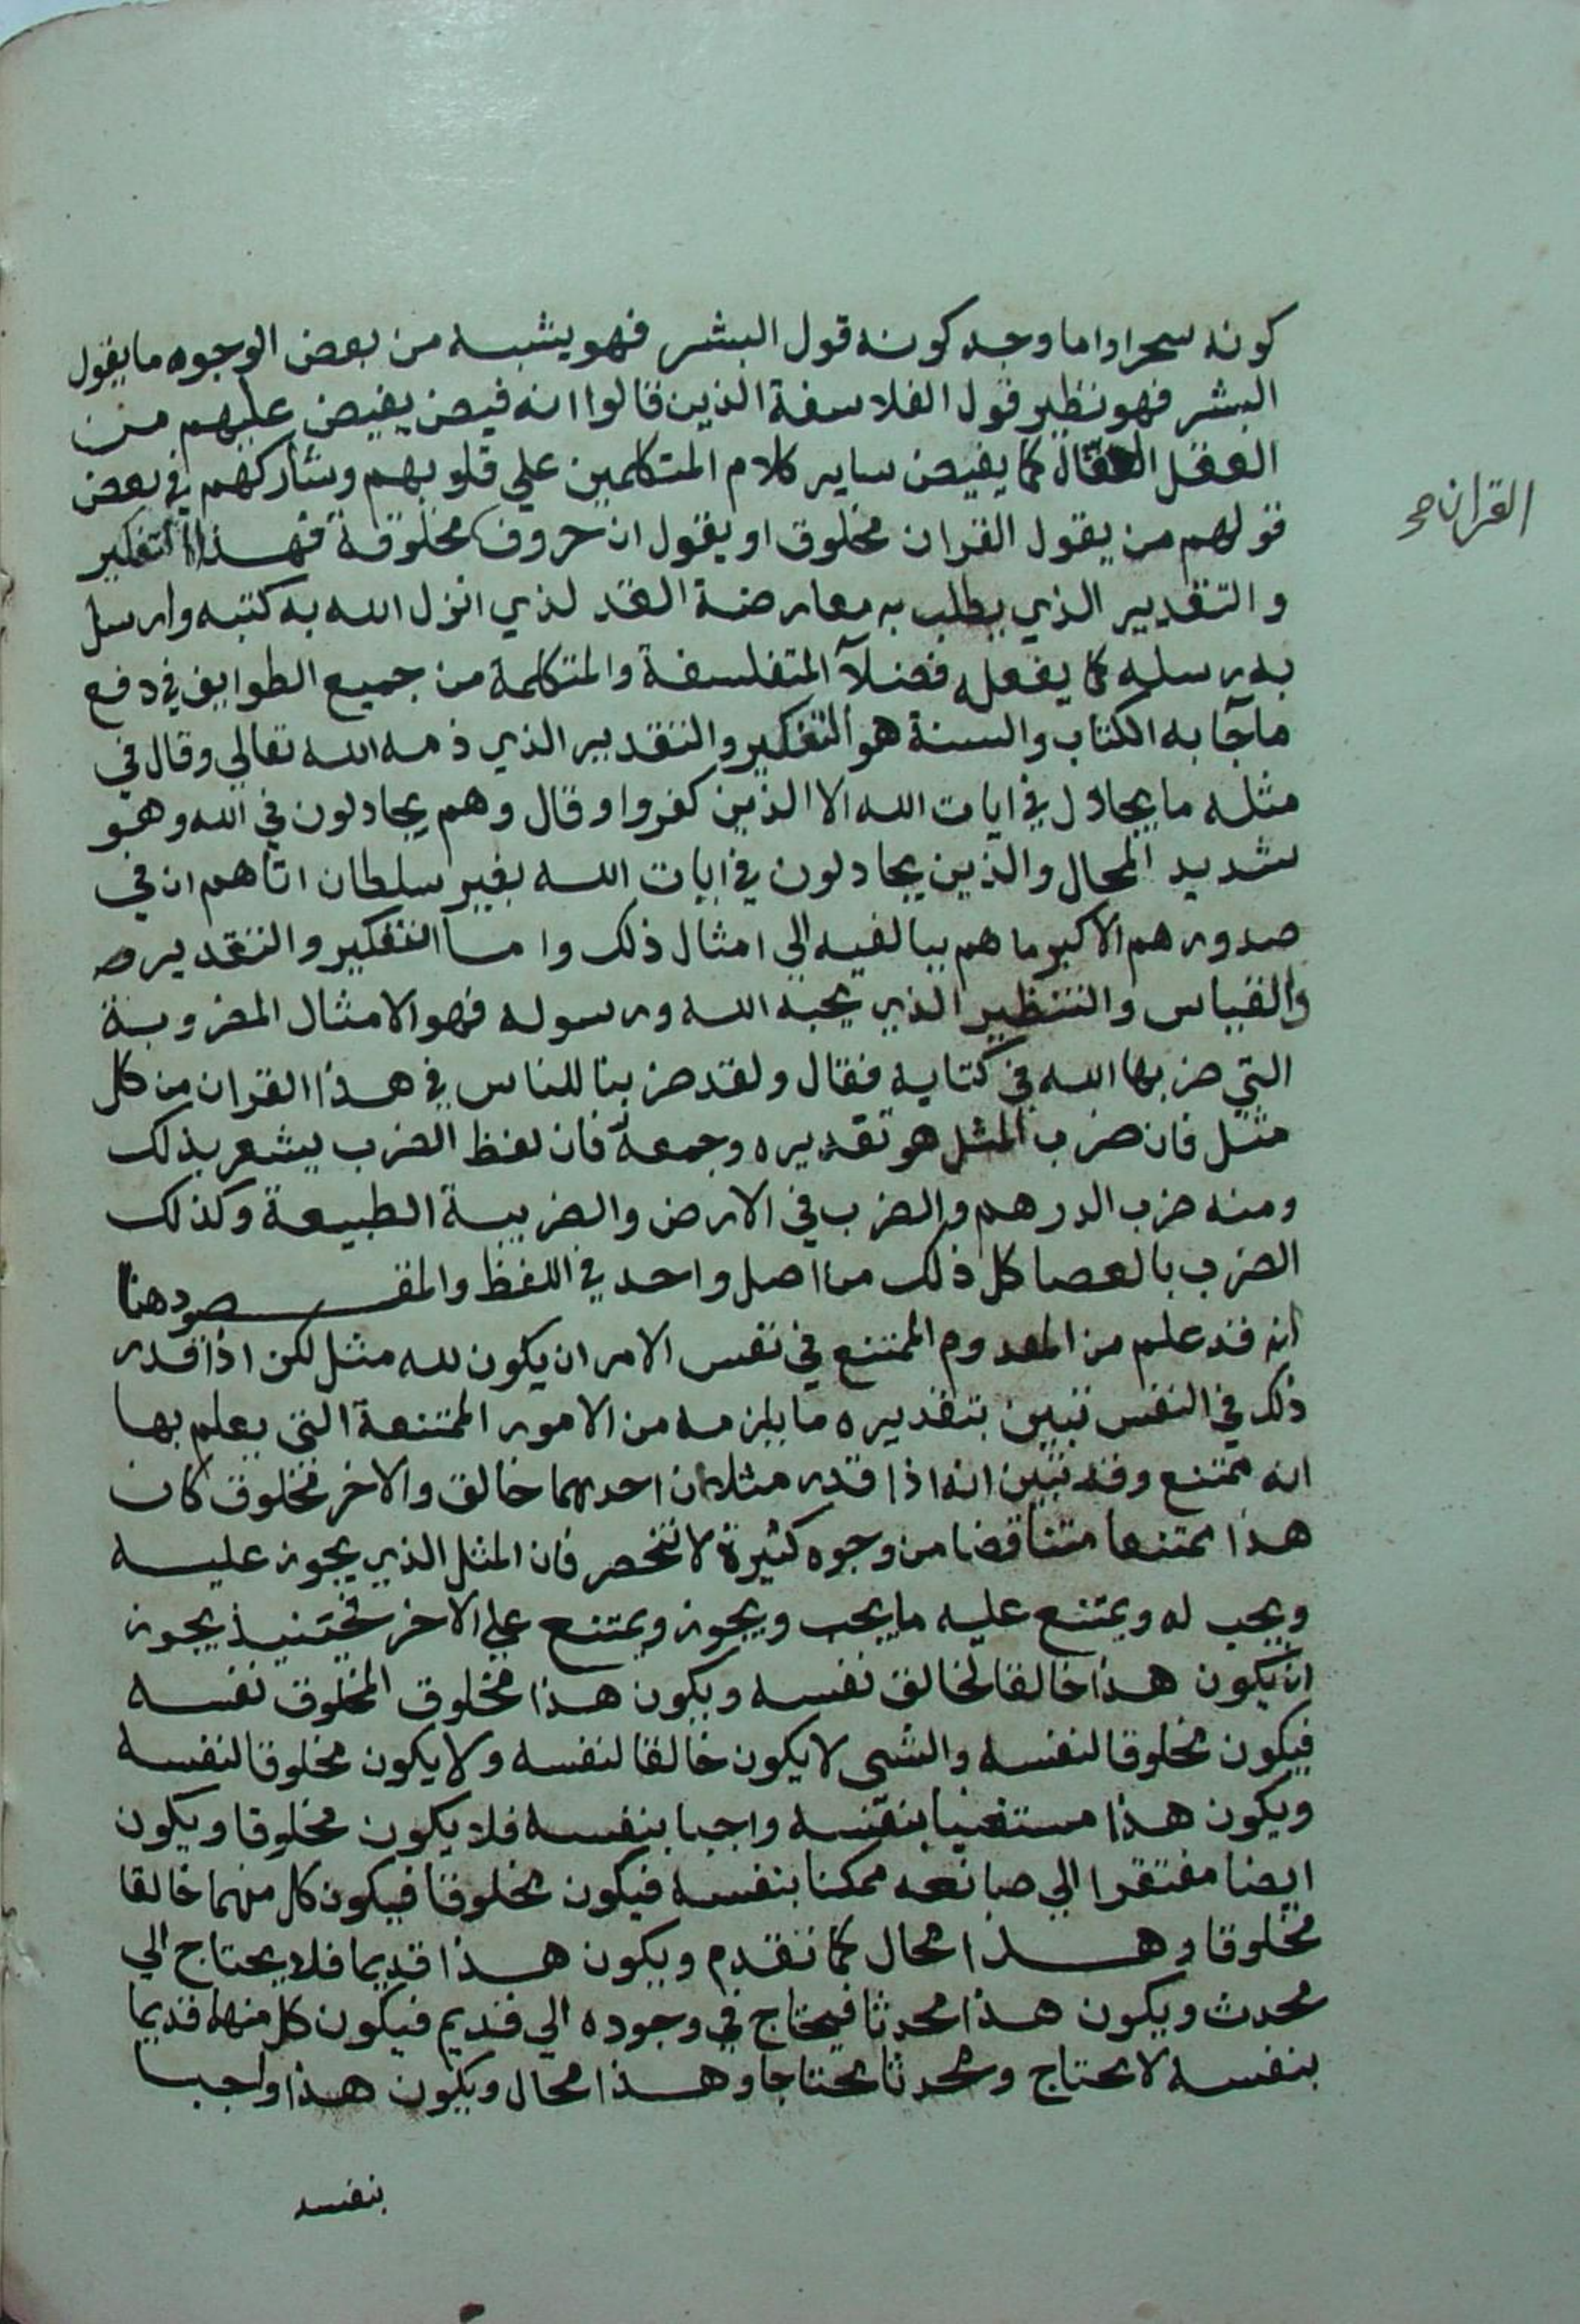 كونه سحرا واما وجه كونه قول البشر فهو يشبه من بعض الوجوه ما يقول
البشر فهو نظير قول الفلاسفة الذين قالوا انه فيض يفيض عليهم من
العقل الفعال كما يفيض ساير كلام المتكلمين علي قلوبهم وشاركهم في بعض
قولهم من يقول القران مخلوق او يقول ان حروف مخلوقة فهذا التفكير
القران صح
والتقدير الذي يطلب به معارضة القد لذي انزل الله به كتبه وارسل
به رسله كما يفعله فضلآ المتفلسفة والمتكلمة من جميع الطوايف في دفع
ما جآ به الكتاب والسنة هو التفكير والتقدير الذي ذمه الله تعالي وقال في
مثله ما يجادل في ايات الله الا الذين كفروا وقال وهم يجادلون في الله وهو
شديد المحال والذين يجادلون في ايات الله بغير سلطان اتاهم ان في
صدورهم الا كبر ما هم ببالغيه الي امثال ذلك واما التفكير والتقدير
والقياس والتنظير الذي يحبه الله ورسوله فهو الامثال المضروبة
التي ضربها الله في كتابه فقال ولقد ضربنا للناس في هذا القران من كل
مثل فان ضرب المثل هو تقديره وجمعه فان لفظ الضرب يشعر بذلك
ومنه ضرب الدرهم والضرب في الارض والضريبة الطبيعة وكذلك
الضرب بالعصا كل ذلك من اصل واحد في اللفظ والمقصود هنا
انه قد علم من المعدوم الممتنع في نفس الامر ان يكون لله مثل لكن اذا قدر
ذلك في النفس تبين بتقديره ما يلزمه من الامور الممتنعة التي يعلم بها
انه ممتنع وقد تبين انه اذا قدر مثلان احدهما خالق والاخر مخلوق كان
هذا ممتنعا متناقضا من وجوه كثيرة لا تنحصر فان المثل الذي يجوز عليه
ويجب له ويمتنع عليه ما يجب ويجوز ويمتنع علي الاخر فحينئيذ يجوز
ان يكون هذا خالقا لخالق نفسه ويكون هذا مخلوق المخلوق نفسه
فيكون مخلوقا لنفسه والشي لا يكون خالقا لنفسه ولا يكون مخلوقا لنفسه
ويكون هذا مستغنيا بنفسه واجبا بنفسه فلا يكون مخلوقا ويكون
ايضا مفتقرا الي صانعه ممكنا بنفسه فيكون مخلوقا فيكون كل منهما خالقا
مخلوقا وهذا محال كما تقدم ويكون هذا قديما فلا يحتاج الي
محدث ويكون هذا محدثا فيحتاج في وجوده الي قديم فيكون كل منهما قديما
بنفسه لا يحتاج ومحدثا محتاجا وهذا محال ويكون هذا واجبا
بنفسه